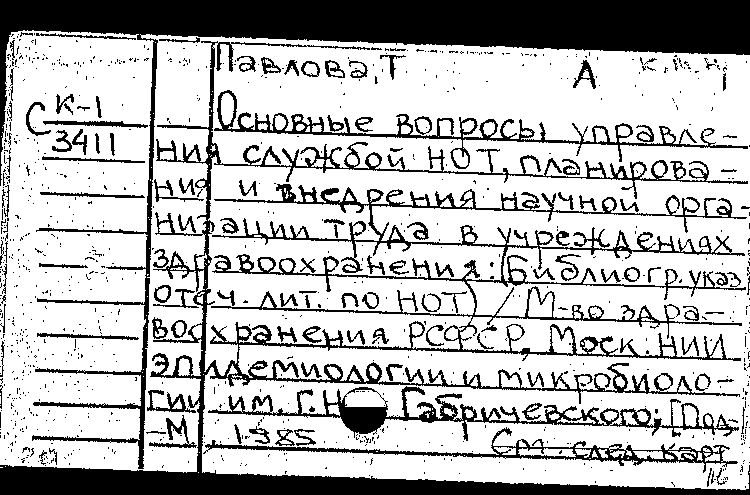 Павлова, Т
А
К.М.Н.
С К-1
3411
Основные вопросы управле-
ния службой НОТ, планирова-
ния и внедрения научной орга-
низации труда в учреждениях
здравоохранения: (Библиогр. указ.
отеч. лит. по НОТ) / М-во здра-
воохранения РСФСР, Моск. НИИ
эпидемиологии и микробиоло-
гии им. Г.Н. Габричевского; [Под-
-М, 1985
См. след. карт